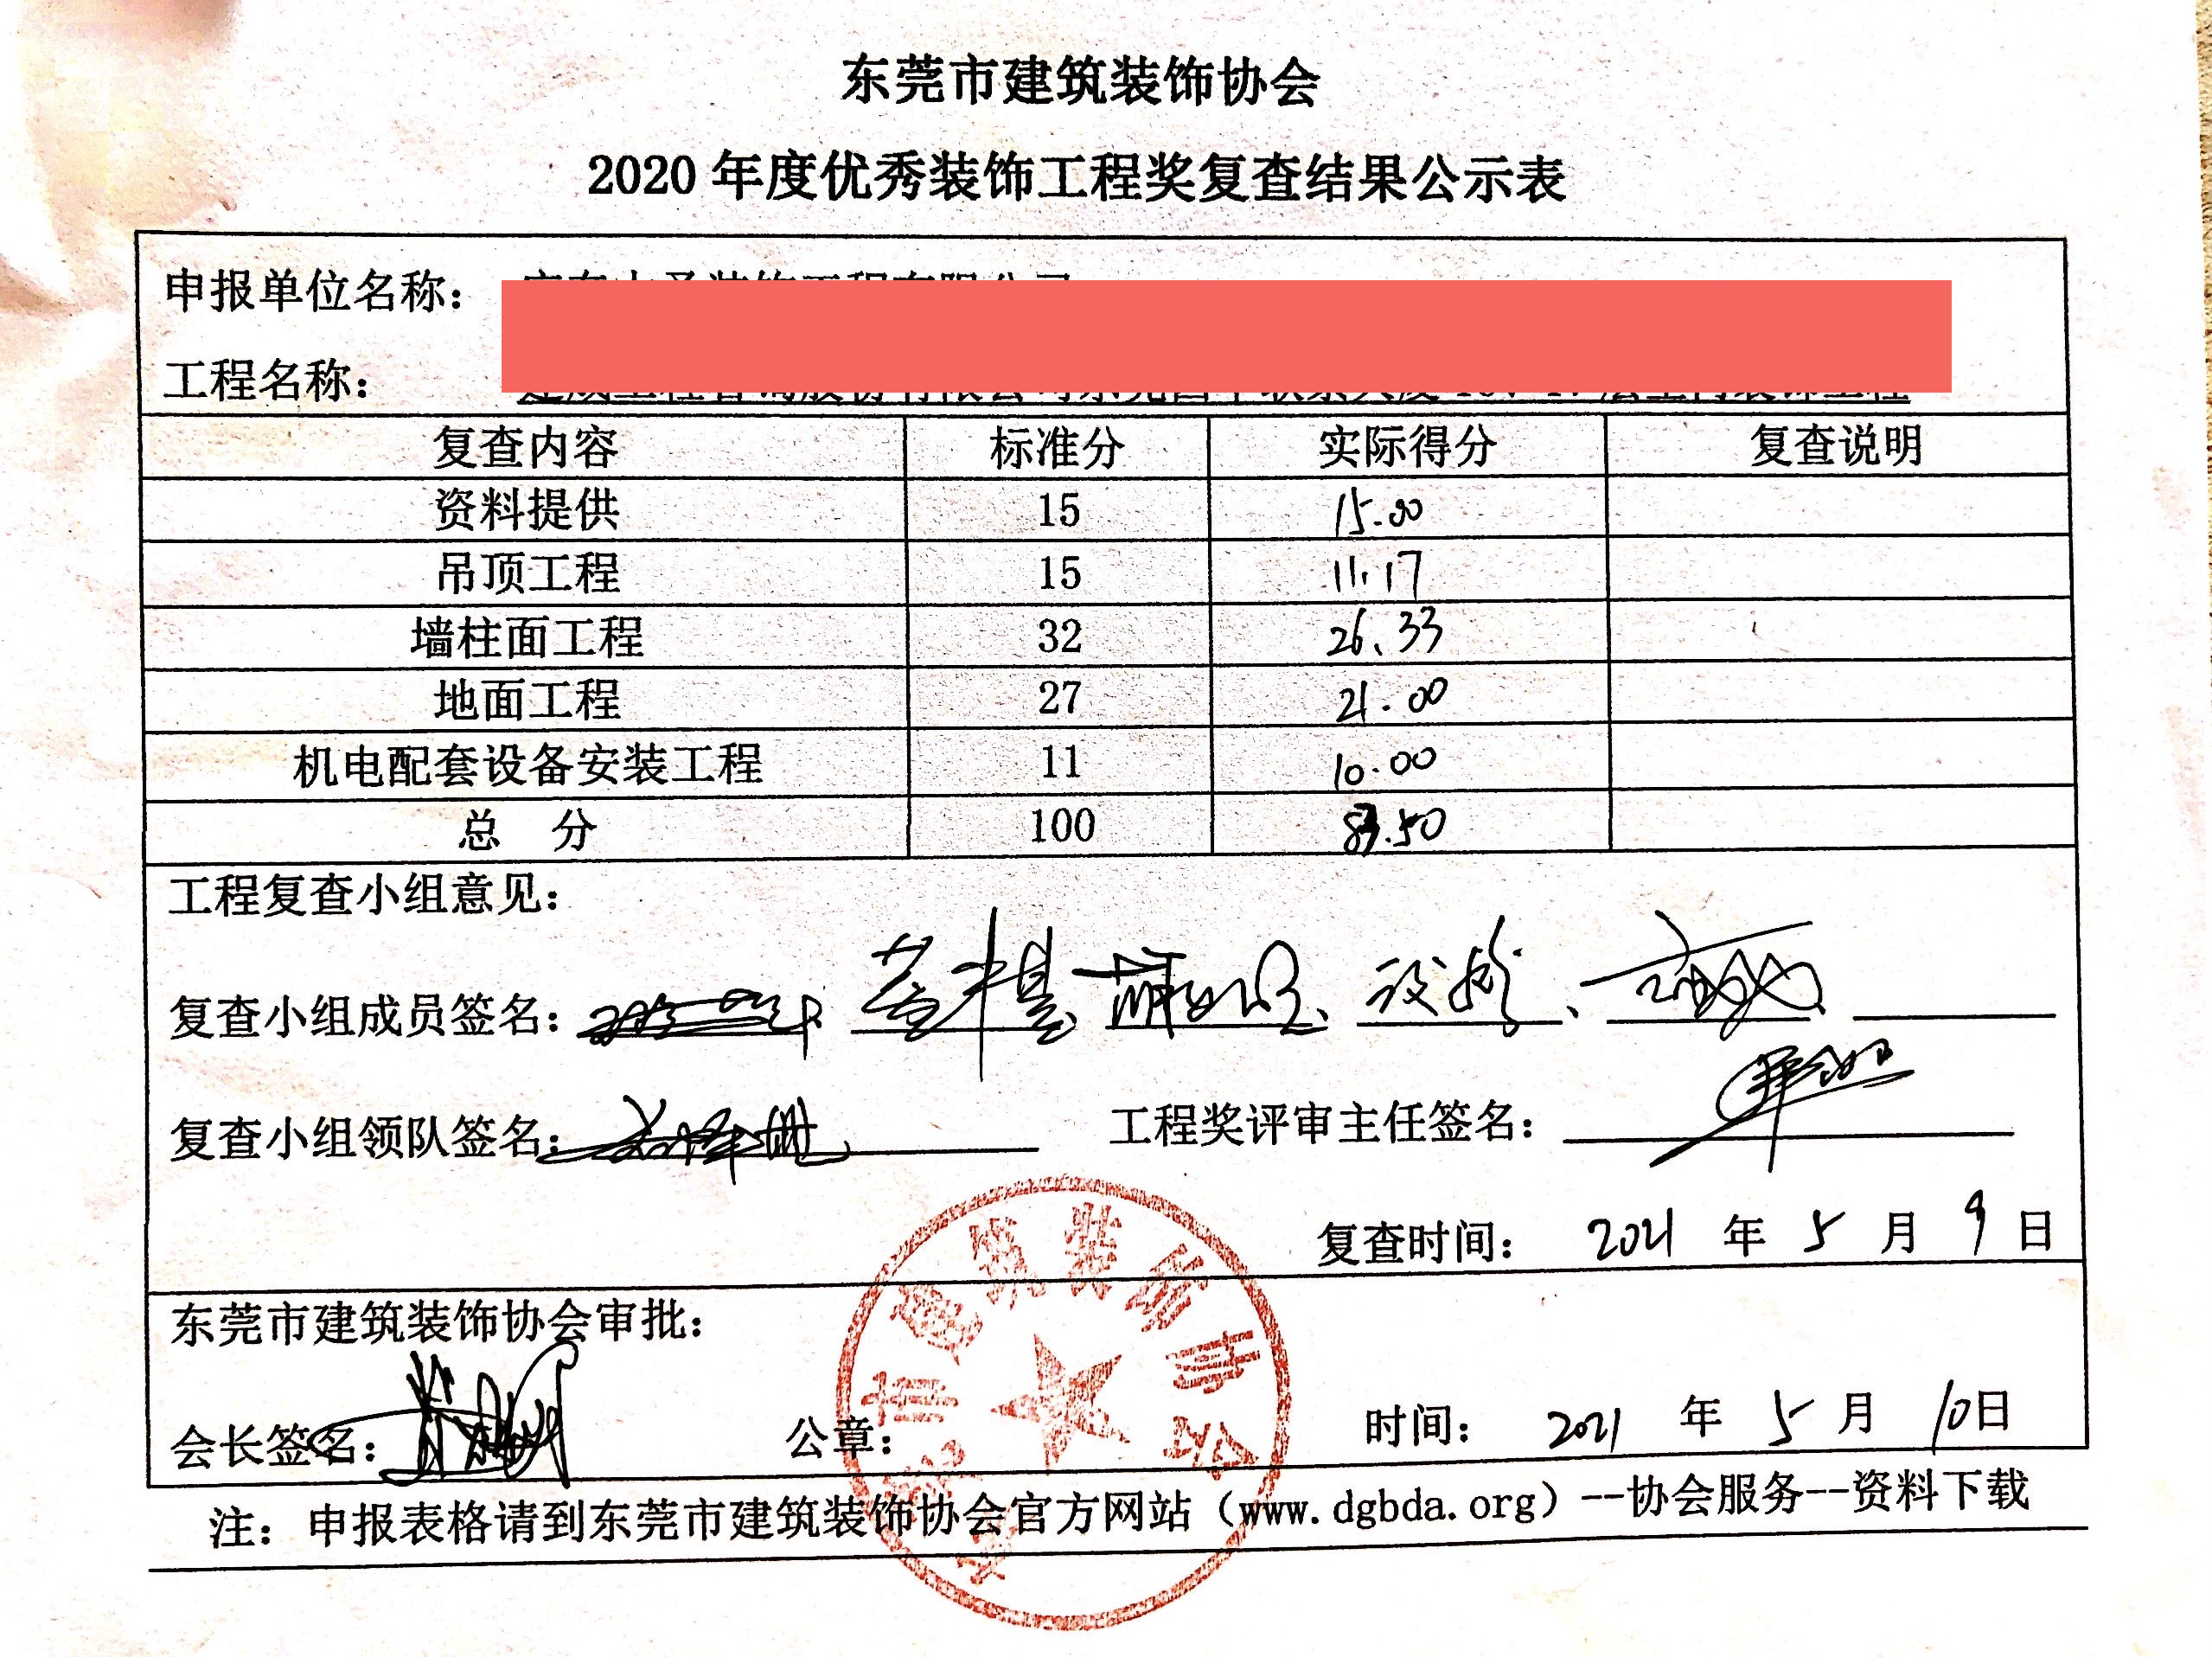 东莞市建筑装饰协会
2020 年度优秀装饰工程奖复查结果公示表
申报单位名称：
工程名称：
复查内容 标准分 实际得分 复查说明
资料提供 15 15.00
吊顶工程 15 11.17
墙柱面工程 32 26.33
地面工程 27 21.00
机电配套设备安装工程 11 10.00
总 分 100 83.50
工程复查小组意见：
复查小组成员签名：
复查小组领队签名： 工程奖评审主任签名：
复查时间： 2021 年 5 月 9 日
东莞市建筑装饰协会审批：
会长签名： 公章： 时间： 2021 年 5 月 10日
东莞市建筑装饰协会
注：申报表格请到东莞市建筑装饰协会官方网站（www.dgbda.org）--协会服务--资料下载